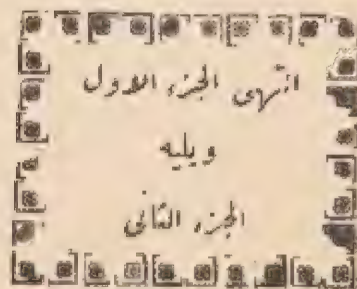 انتهى الجزء الاول
ويليه
الجزء الثانى